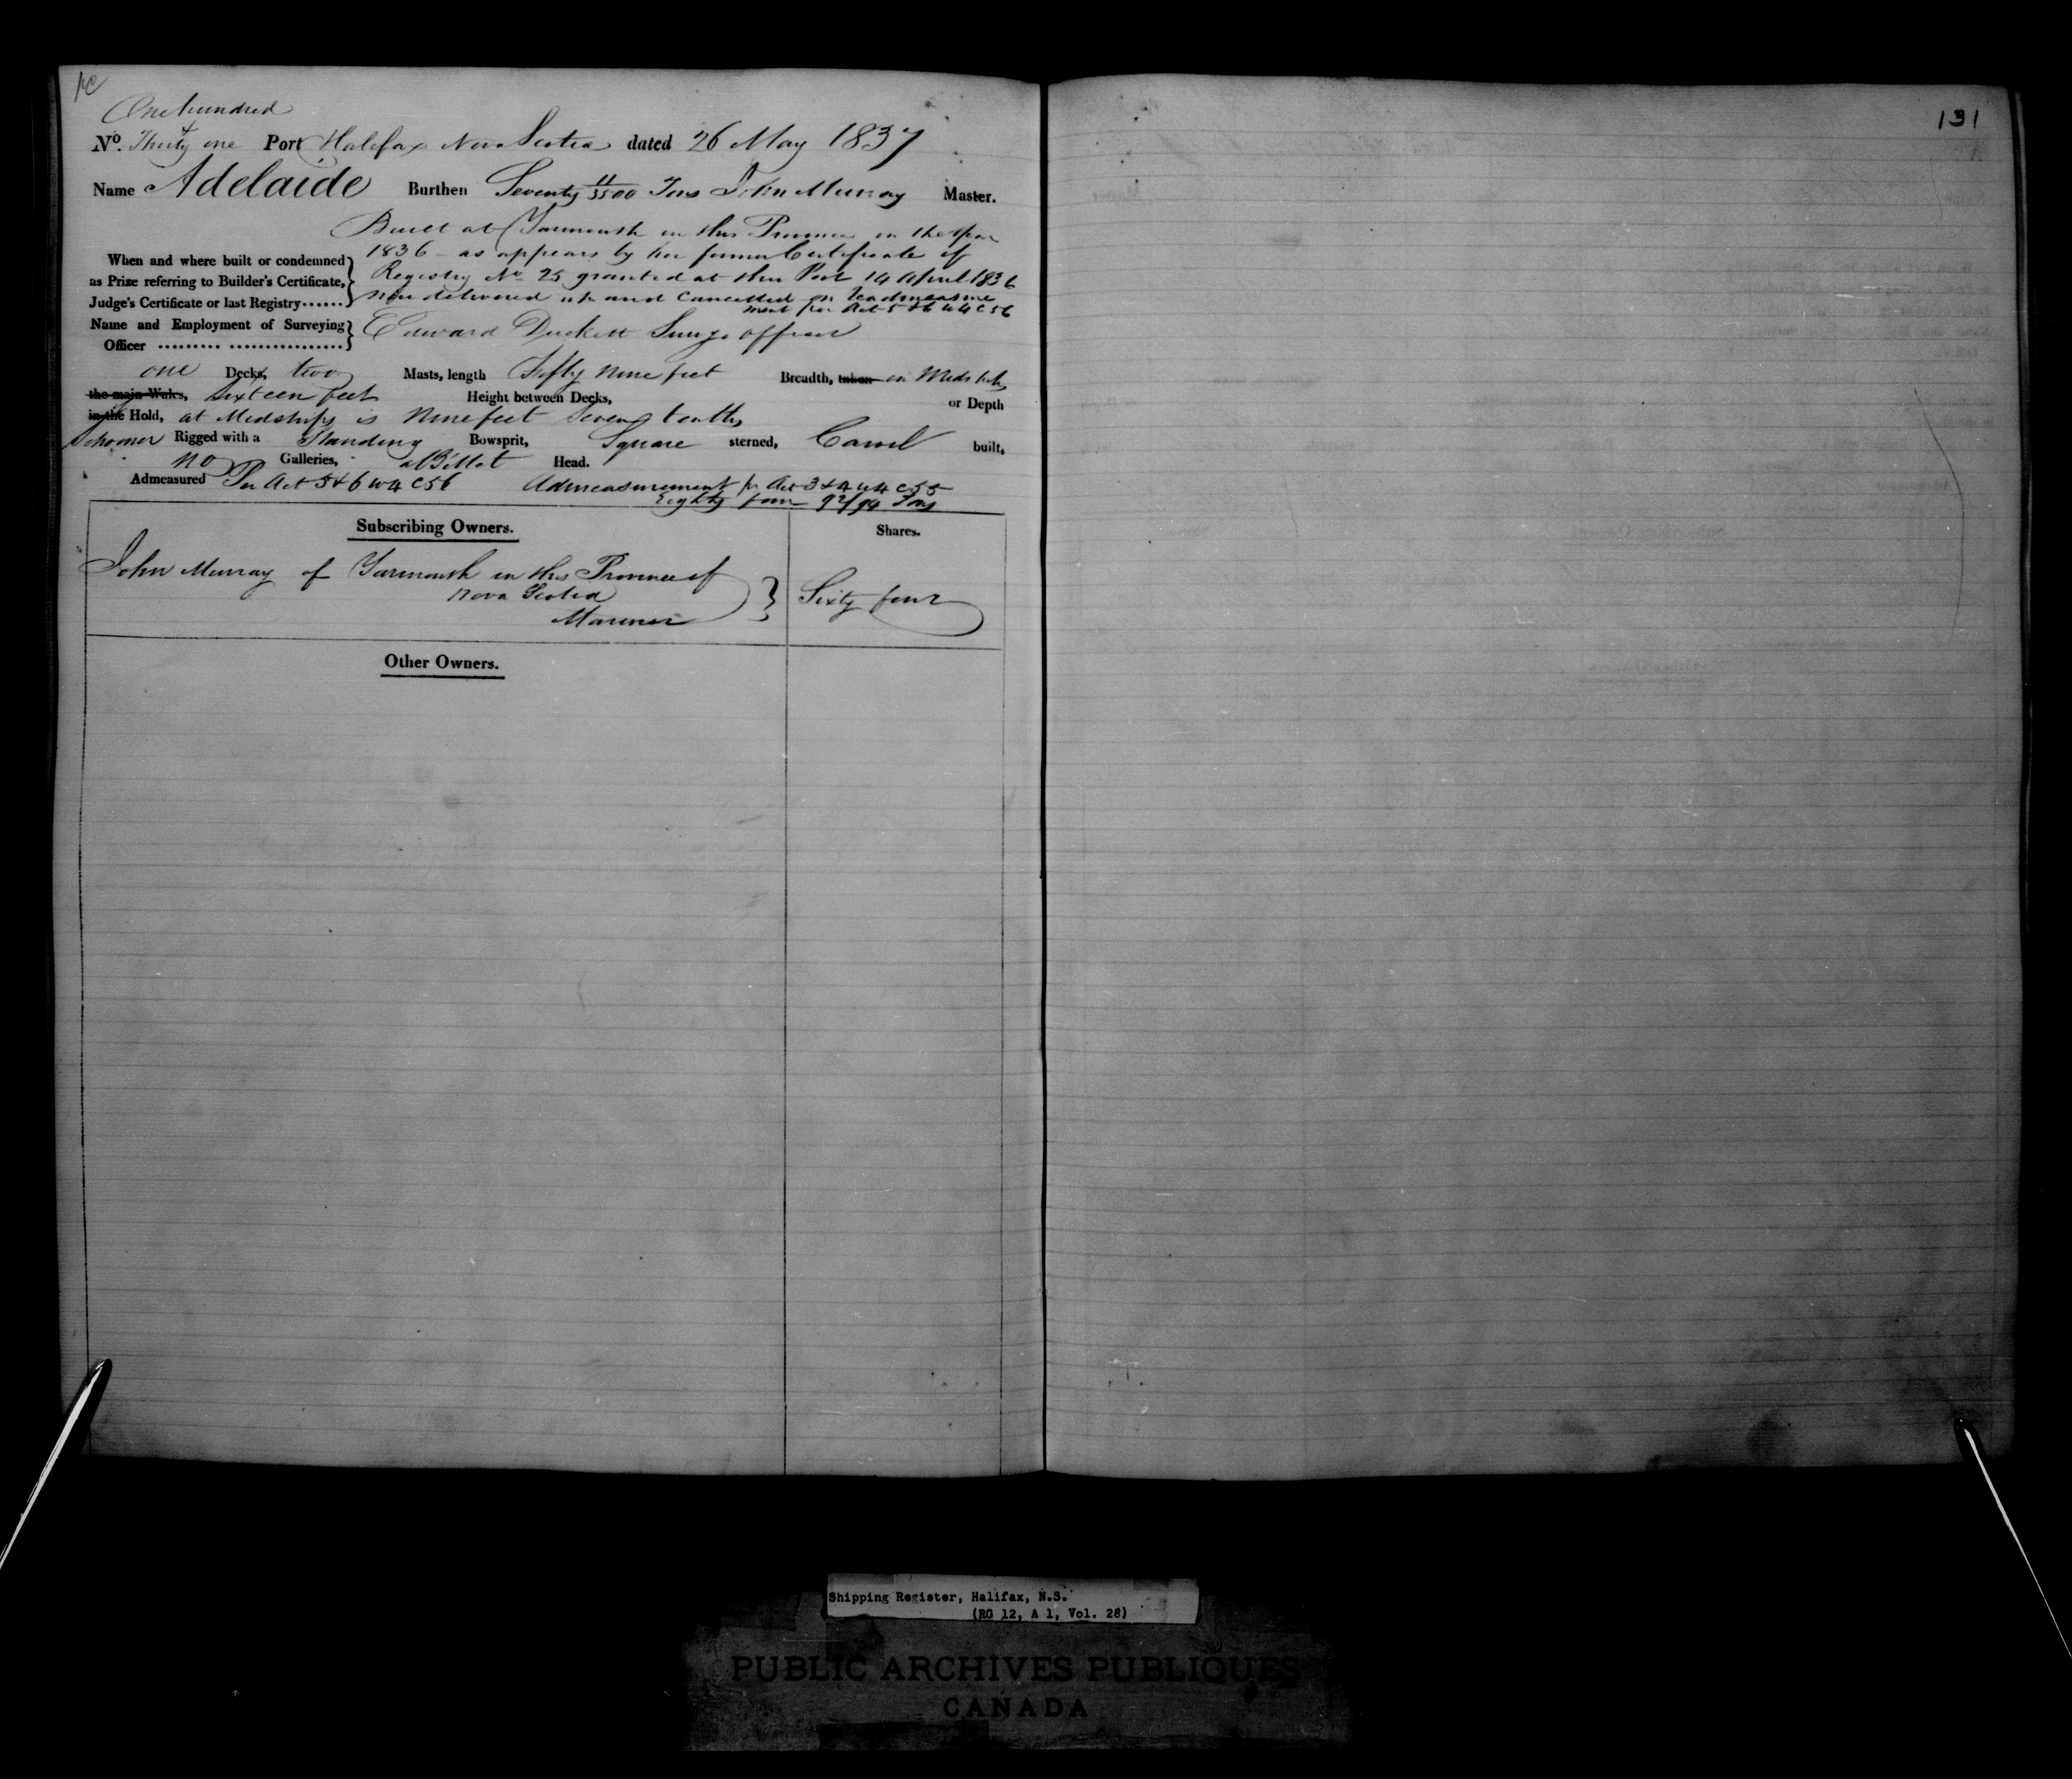 131
One hundred
No. Thirty & one Port Halifax Nova Scotia dated 26 May 1837
Name Adelaide Burthen Seventy 11/3500 Tons John Murray Master.
Built at Yarmouth in this Province in the Year
When and where built or condemned 1836 - as appears by her former Certificate of
as Prize referring to Builder's Certificate, Registry No 25 granted at this Port 14 April 1836
Judge's Certificate or last Registry...... now delivered up and Cancelled on Readmeasure
ment per Act 5 & 6 W 4 C 56
Name and Employment of Surveying Edward Duckett Surv'g officer
Officer ......... ................
one Decks, two Masts, length Fifty nine feet Breadth, taken in Midships
the main Wales, Sixteen feet Height between Decks, or Depth
in the Hold, at Midships is nine feet Seven tenths
Schooner Rigged with a Standing Bowsprit, Square sterned, Carvel built,
no Galleries, a Billet Head.
Admeasured Per Act 5 & 6 W 4 C 56 Admeasurement pr Act 3 & 4 W 4 C 55
Eighty four 92/94 Tons
Subscribing Owners. Shares.
John Murray of Yarmouth in this Province of
Nova Scotia Sixty four
Mariner
Other Owners.
Shipping Register, Halifax, N.S.
(RG 12, A 1, Vol. 28)
PUBLIC ARCHIVES PUBLIQUES
CANADA